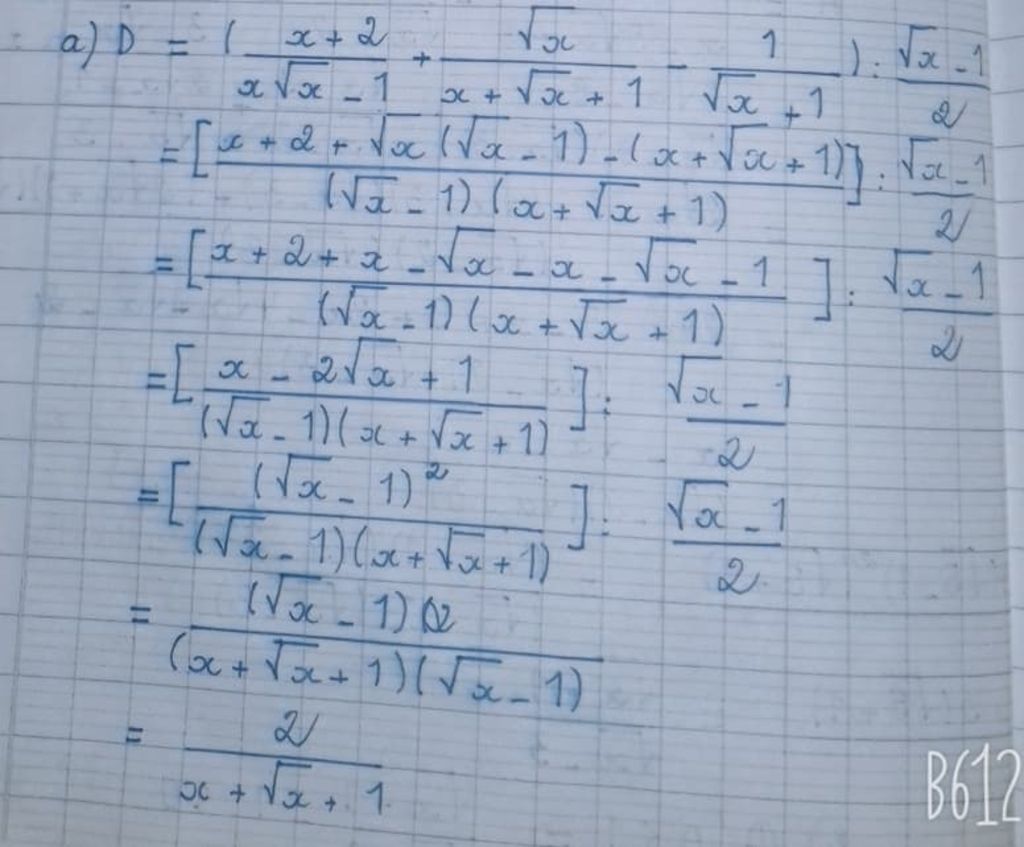 a) D = ( (x + 2)/(x√x - 1) + √x/(x + √x + 1) - 1/(√x + 1) ) : (√x - 1)/2
= [ (x + 2 + √x (√x - 1) - (x + √x + 1))/((√x - 1) (x + √x + 1)) ] : (√x - 1)/2
= [ (x + 2 + x - √x - x - √x - 1)/((√x - 1) (x + √x + 1)) ] : (√x - 1)/2
= [ (x - 2√x + 1)/((√x - 1)(x + √x + 1)) ] : (√x - 1)/2
= [ (√x - 1)²/((√x - 1)(x + √x + 1)) ] : (√x - 1)/2
= ((√x - 1) 2)/((x + √x + 1)(√x - 1))
= 2/(x + √x + 1)
B612